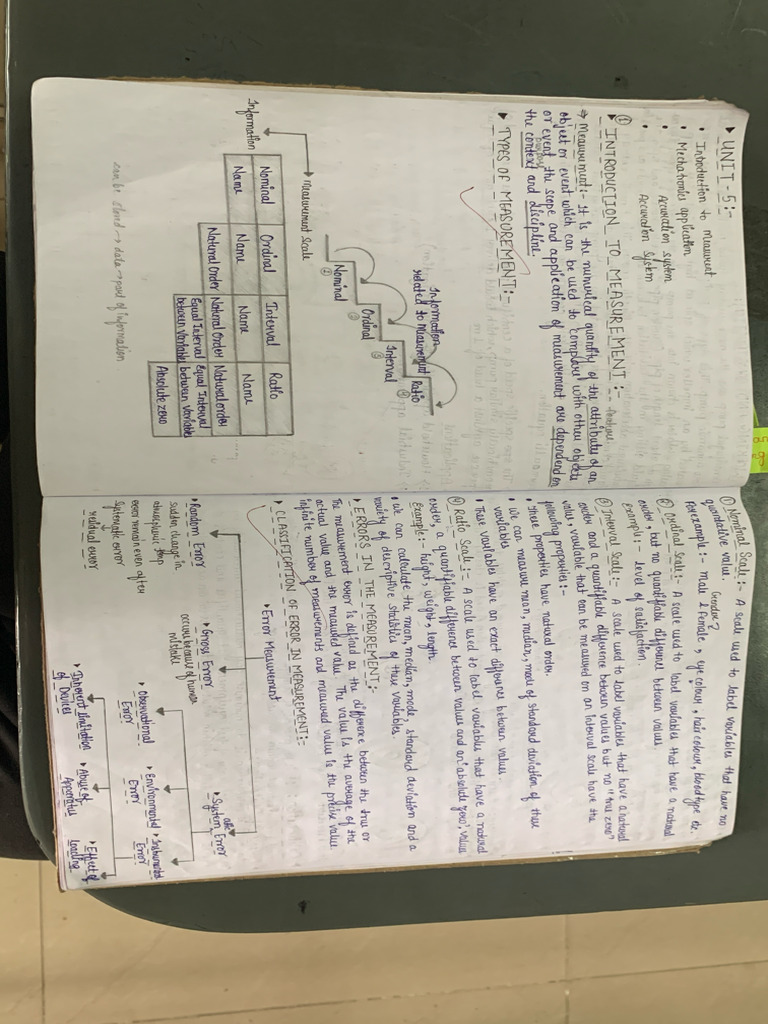 ▸ UNIT-5:-
• Introduction to measurment
• Mechatronics application
• Acuvation system
• Acuvation system
① ▸ INTRODUCTION TO MEASUREMENT:-
⇒ Measurment:- It is the numurical quantity of the attribute of an
object or event which can be used to compare with other objects
or event the scope and application of measurment are dependend on
the context and discipline.
▸ TYPES OF MEASUREMENT:-
Information
related to Measurment
Nominal
①
Ordinal
②
Interval
③
Ratio
④
▸ Measurment scale
Information
Nominal Ordinal Interval Ratio
Name Name Name Name
Natural Order Natural Order Natural order
Equal Interval Equal Interval
between Variable between Variable
Absolute zero
can be stored → data → part of information
① Nominal Scale:- A scale used to label variables that have no
quantitative value.
Gender?
For example:- Male & Female, eye colour, hair colour, blood type etc.
② Ordinal Scale:- A scale used to label variables that have a natural
order, but no quantifiable difference between values
example:- level of satisfaction.
③ Interval Scale:- A scale used to label variables that have a natural
order and a quantifiable difference between values but no "true zero"
value, variable that can be measured on an Interval scale have the
following properties:-
• These properties have natural order.
• we can measure mean, median, mode of standard deviation of these
variables
• These variables have an exact difference between values.
④ Ratio Scale:- A scale used to label variables that have a natural
order, a quantifiable difference between values and an 'absolute zero', value
example:- height, weight, length.
• we can calculate the mean, median, mode, standard deviation and a
variety of descriptive statistics of these variables.
▸ ERRORS IN THE MEASUREMENT:-
The measurement error is defined as the difference between the true or
actual value and the measured value. The value is the average of the
infinite number of measurements and measured value is the precise value
▸ CLASSIFICATION OF ERROR IN MEASUREMENT:-
• Error Measurement
▸ Random Error
sudden change in
atmospheric temp
error remain even after
systematic error
residual error
▸ Gross Error
occurs because of human
mistake
▸ System Error
▸ Observational
Error
▸ Environmental
Error
▸ Instrumental
Error
▸ Inherent limitation
of Devices
▸ Abuse of
Apparatus
▸ Effect of
Loading